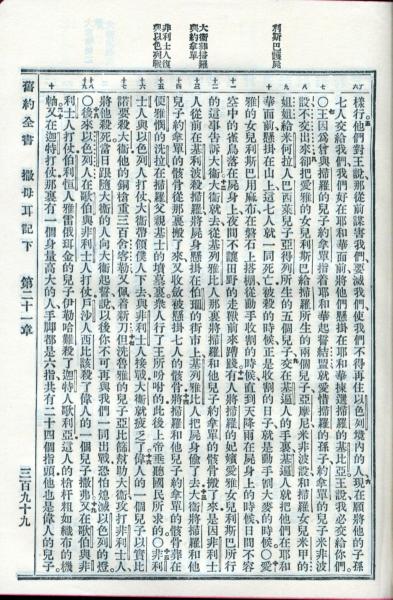 利斯巴護屍
大衛葬掃羅與約拿單
非利士人復與以色列戰
樣行他們對王說那從前謀害我們要滅我們使我們不得再住以色列境內的人現在願將他的子孫
七人交給我們我們好在耶和華面前將他們懸掛在耶和華揀選掃羅的基比亞王說我必交給你們
○王因爲曾與掃羅的兒子約拿單指着耶和華起誓結盟就愛惜掃羅的孫子約拿單的兒子米非波
設不交出來卻把愛雅的女兒利斯巴給掃羅所生的兩個兒子亞摩尼米非波設和掃羅女兒米甲的
姐姐給米何拉人巴西萊兒子亞得列所生的五個兒子交在基遍人的手裏基遍人就把他們在耶和
華面前懸掛在山上這七人就一同死亡被殺的時候正是收割的日子就是動手割大麥的時候○愛
雅的女兒利斯巴用麻布在磐石上搭棚從動手收割的時候直到天降雨在屍身上的時候日間不容
空中的雀鳥落在屍身上夜間不讓田野的走獸前來蹧踐有人將掃羅的妃嬪愛雅女兒利斯巴所行
的這事告訴大衛大衛就去從基列雅比人那裏將掃羅和他兒子約拿單的骸骨搬了來是因非利士
人從前在基利波殺掃羅將屍身懸掛在伯珊的街市上基列雅比人把屍身偷了去大衛將掃羅和他
兒子約拿單的骸骨從那裏搬了來又收斂被懸掛七人的骸骨將掃羅和他兒子約拿單的骸骨葬在
便雅憫的洗拉在掃羅父親基士的墳墓裏衆人行了王所吩咐的此後上帝垂聽國民所求的○非利
士人與以色列人打仗大衛帶領僕人下去與非利士人接戰大衛就疲乏了偉人的一個兒子以實比
諾要殺大衛他的銅槍重三百舍客勒又佩着新刀但洗魯雅的兒子亞比篩幫助大衛攻打非利士人
將他殺死當日跟隨大衛的人向大衛起誓說以後你不可再與我們一同出戰恐怕熄滅以色列的燈
○後來以色列人在歌伯與非利士人打仗戶沙人西比該殺了偉人的一個兒子撒弗又在歌伯與非
利士人打仗伯利恒人雅雷俄珥金的兒子伊勒哈難殺了迦特人歌利亞這人的槍杆粗如織布的機
軸又在迦特打仗那裏有一個身量高大的人手脚都是六指共有二十四個指頭他也是偉人的兒子
舊約全書　撒母耳記下　第二十一章　三百九十九